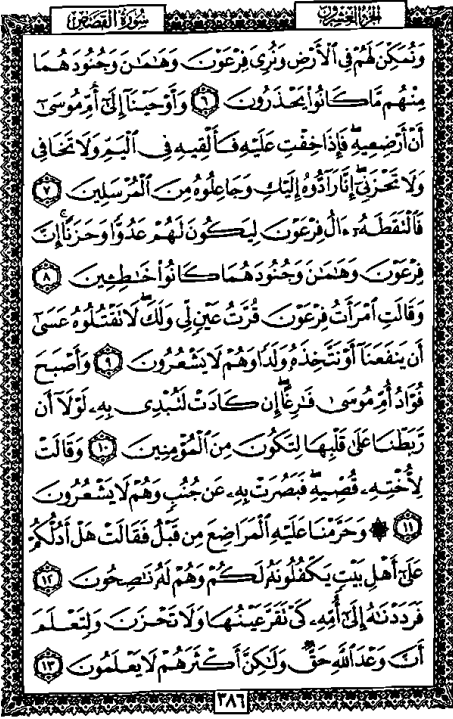 سُورَةُ القَصَصِ
الجزء العشرون
وَنُمَكِّنَ لَهُمْ فِي ٱلْأَرْضِ وَنُرِىَ فِرْعَوْنَ وَهَٰمَٰنَ وَجُنُودَهُمَا
مِنْهُم مَّا كَانُوا۟ يَحْذَرُونَ ٦ وَأَوْحَيْنَآ إِلَىٰٓ أُمِّ مُوسَىٰٓ
أَنْ أَرْضِعِيهِ ۖ فَإِذَا خِفْتِ عَلَيْهِ فَأَلْقِيهِ فِى ٱلْيَمِّ وَلَا تَخَافِى
وَلَا تَحْزَنِىٓ ۖ إِنَّا رَآدُّوهُ إِلَيْكِ وَجَاعِلُوهُ مِنَ ٱلْمُرْسَلِينَ ٧
فَٱلْتَقَطَهُۥٓ ءَالُ فِرْعَوْنَ لِيَكُونَ لَهُمْ عَدُوًّا وَحَزَنًا ۗ إِنَّ
فِرْعَوْنَ وَهَٰمَٰنَ وَجُنُودَهُمَا كَانُوا۟ خَٰطِـِٔينَ ٨
وَقَالَتِ ٱمْرَأَتُ فِرْعَوْنَ قُرَّتُ عَيْنٍ لِّى وَلَكَ ۖ لَا تَقْتُلُوهُ عَسَىٰٓ
أَن يَنفَعَنَآ أَوْ نَتَّخِذَهُۥ وَلَدًا وَهُمْ لَا يَشْعُرُونَ ٩ وَأَصْبَحَ
فُؤَادُ أُمِّ مُوسَىٰ فَٰرِغًا ۖ إِن كَادَتْ لَتُبْدِى بِهِۦ لَوْلَآ أَن
رَّبَطْنَا عَلَىٰ قَلْبِهَا لِتَكُونَ مِنَ ٱلْمُؤْمِنِينَ ١٠ وَقَالَتْ
لِأُخْتِهِۦ قُصِّيهِ ۖ فَبَصُرَتْ بِهِۦ عَن جُنُبٍ وَهُمْ لَا يَشْعُرُونَ
١١ ۞ وَحَرَّمْنَا عَلَيْهِ ٱلْمَرَاضِعَ مِن قَبْلُ فَقَالَتْ هَلْ أَدُلُّكُمْ
عَلَىٰٓ أَهْلِ بَيْتٍ يَكْفُلُونَهُۥ لَكُمْ وَهُمْ لَهُۥ نَٰصِحُونَ ١٢
فَرَدَدْنَٰهُ إِلَىٰٓ أُمِّهِۦ كَىْ تَقَرَّ عَيْنُهَا وَلَا تَحْزَنَ وَلِتَعْلَمَ
أَنَّ وَعْدَ ٱللَّهِ حَقٌّ وَلَٰكِنَّ أَكْثَرَهُمْ لَا يَعْلَمُونَ ١٣
٣٨٦